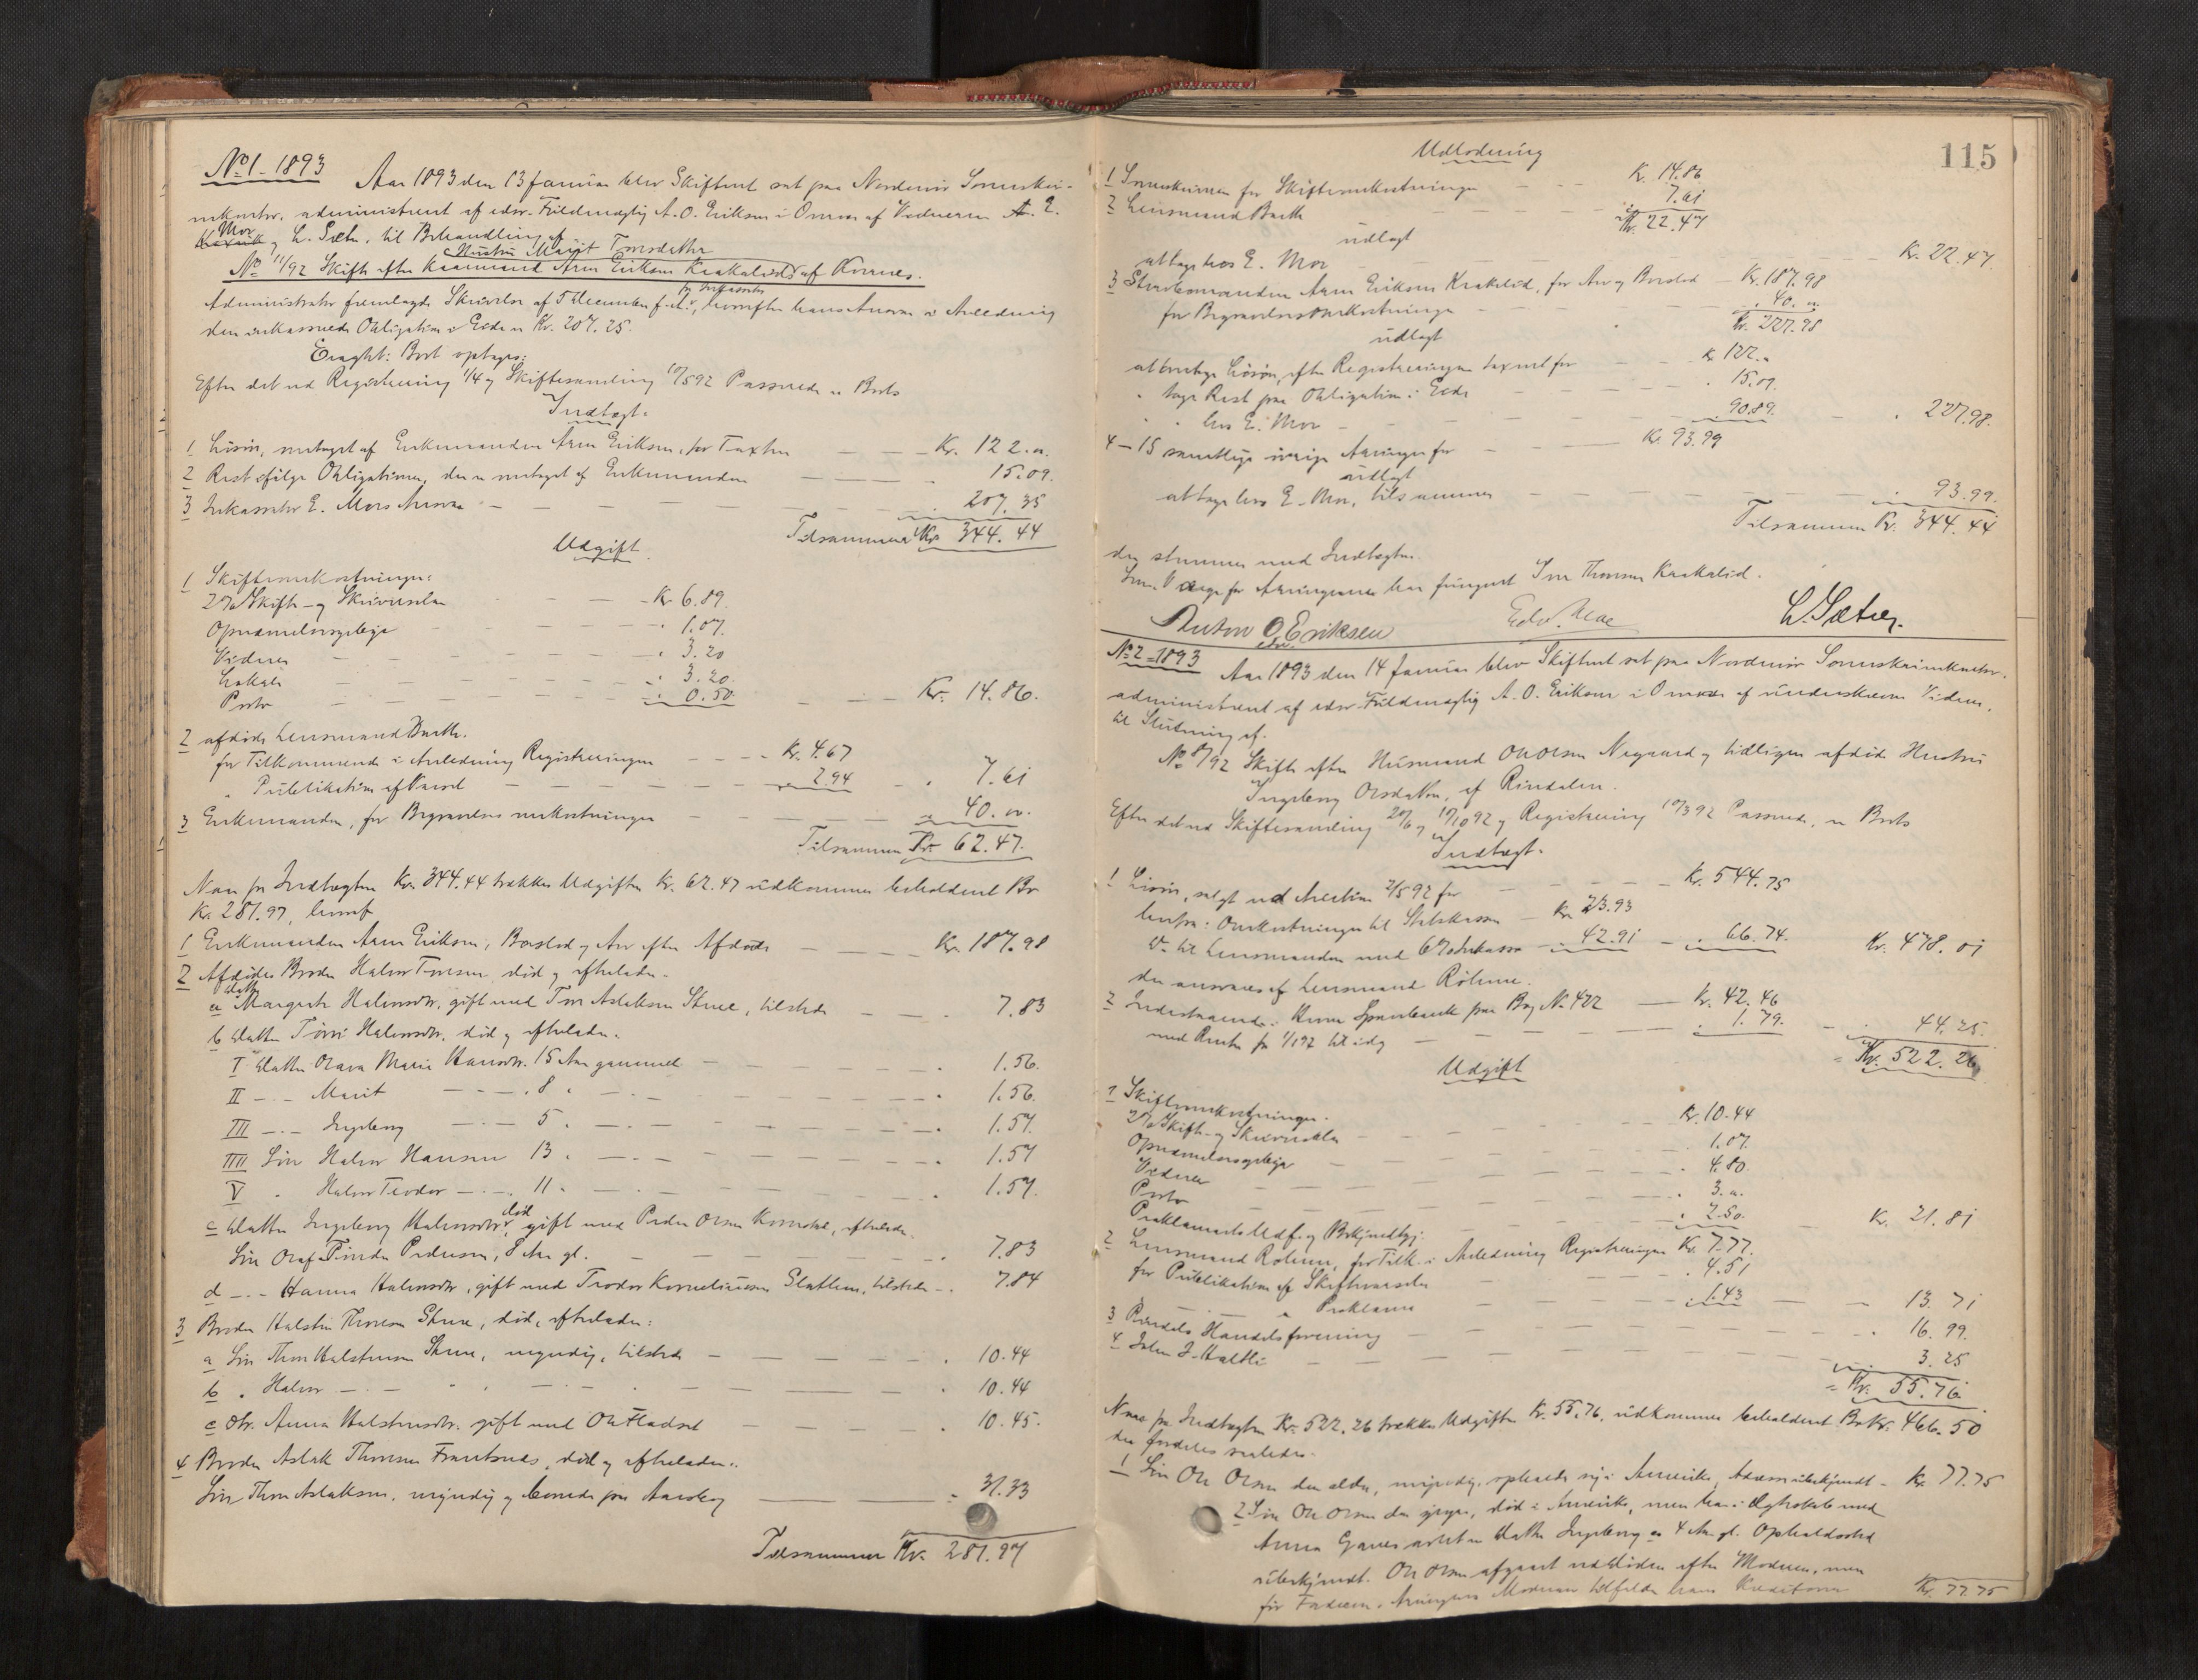 No 1 - 1893
Aar 1893 den 13 Januar blev Skifteret sat paa Nordmør Sorenskri-
verkontor, administreret af edsv. Fuldmægtig A. O. Eriksen i Overvær af Vidnerne A. E.
Mor
og L. Sæter, til Behandling af
Hustru Marit Toresdatter
No 11/92 Skifte efter Kaarmand Arne Eriksen Kraakalids af Kvernes.
Administrator fremlagde Skrivelse af 5 December f. A., hvorefter hans Ansvar i Anledning
den inkasserede Obligation i Eide er Kr. 207.25.
Eragtet: Bort optages:
Efter det ved Registrering 1/4 og Skiftesamling 10/5 92 Passerede er Boets
Indtægt.
1 Løsøre, modtaget af Enkemanden Arne Eriksen, for Taxten Kr. 122.
2 Rest ifølge Obligationen, der er modtaget af Enkemanden 15.09.
3 Inkassator E. Mors Ansvar 207.35
Tilsammen Kr. 344.44
Udgift
1 Skifteomkostninger:
2% Skifte- og Skriverselær Kr 6.89.
Opnævnelsesgebyr 1.07.
Vidner 3.20
Lokale 3.20.
Porto 0.50. Kr. 14.86.
2 afdøde Lensmand Barth.
for Tilkommende i Anledning Registreringen Kr. 4.67
" Publikation af Varsel 2.94 7.61
3 Enkemanden, for Begravelses omkostninger 40.
Tilsammen Kr. 62.47.
Naar fra Indtægten Kr. 344.44 trækkes Udgiften Kr. 62.47 udkommer beholdent Bo
Kr. 281.97, hvoraf
1 Enkemanden Arne Eriksen, Boeslod og Arv efter Afdøde Kr. 187.98
2 Afdødes Broder Halvor Toresen, død og efterladen.
a Datter Margrete Halvorsdtr. gift med Tore Aslaksen Skrue, tilstede 7.83
b Datter Halvorsdtr. død og efterladen.
I Datter Olava Marie Hansdtr. 15 Aar gammel 1.56.
II - - Marit 8 1.56.
III - - Ingeborg 5 1.57.
IIII Søn Halvor Hansen 13 1.57
V " Halvor Teodor 11 1.57.
c Datter Ingeborg Halvorsdtr. død, gift med Peder Olsen, efterladen
Søn Oraf Pedersen, 8 Aar gl. 7.83
d - - Hanna Halvorsdtr., gift med Teodor Korneliussen, tilstede 7.84
3 Broder Halstein Thoresen Skrue, død, efterladen:
a Søn Thore Halstensen Skrue, myndig, tilstede 10.44
b " Halvor 10.44
c Dtr. Anna Halstensdtr. gift med Ole Fladset 10.45.
4 Broder Aslak Thoresen, død og efterladen.
Søn Thore Aslaksen, myndig og boende paa Averøy 31.33
Tilsammen Kr. 281.97
115
Udlodning
1 Sorenskriveren for Skifteomkostninger Kr. 14.86
2 Lensmand Barth 7.61
Kr. 22.47
udlagt
at tage hos E. Mor Kr. 22.47.
3 Sterbomanden Arne Eriksen Kraakalid, for Arv og Boeslod Kr. 187.98
for Begravelsesomkostninger 40.
Kr. 227.98
udlagt
at beholde Løsøre, efter Registreringen taxeret for Kr 122.
" tage Rest paa Obligation i Eide 15.09.
" hos E. Mor 90.89. 227.98.
4-15 samtlige øvrige Arvinger for Kr. 93.99
udlagt
at tage hos E. Mor, tilsammen 93.99.
Tilsammen Kr. 344.44
der stemmer med Indtægten.
Som Værge for Arvingerne har fungeret Iver Thoresen Kraakalid.
Anton O. Eriksen
edsv.
Edv. Moe
L. Sæter.
No 2 - 1893
Aar 1893 den 14 Januar blev Skifteret sat paa Nordmør Sorenskriverkontor,
administreret af edsv. Fuldmægtig A. O. Eriksen i Overvær af underskrevne Vidner,
til Slutning af.
No 8/92 Skifte efter Husmand Ole Olsen Negaard og tidligere afdøde Hustru
Ingeborg Olsdatter, af Rindalen.
Efter det ved Skiftesamling 20/6 og 19/10 92 og Registrering 10/3 92 Passerede, er Boets
Indtægt.
1 Løsøre, solgt ved Auktion 2/5 92 for Kr. 544.75
herfra: Omkostninger til Statskassen Kr. 23.93
Do til Lensmanden med 6% Inkasso 42.91 66.74. Kr. 478.01
der ansvares af Lensmand Röhme.
2 Indestaaende i Sparebank paa Bog No. 422 Kr. 42.46
med Rente fra 1/1 92 til idag 1.79. 44.25.
Kr. 522.26
Udgift
1 Skifteomkostninger.
2% Skifte- og Skriverselær Kr. 10.44
Opnævnelsesgebyr 1.07.
Vidner 4.80.
Porto 3.
Proklamaets Udf. og Bekjendtgj. 2.50. Kr. 21.81
2 Lensmand Rohme, for Tilk. i Anledning Registreringen Kr. 7.77.
for Publikation af Skiftevarsler 4.51
" Proklama 1.43 13.71
3 Handelsforening 16.99.
4 3.25
Kr. 55.76
Naar fra Indtægten Kr. 522.26 trækkes Udgiften Kr. 55.76, udkommer beholdent Bo Kr. 466.50
der fordeles saaledes.
1 Søn Ole Olsen den ældre, myndig, opholder sig i Amerika, Adresse ubekjendt Kr. 77.75
2 Søn Ole Olsen den yngre, død i Amerika, men har i Ægteskab med
Anna avlet en Datter Ingeborg 4 Aar gl. Opholdssted
ubekjendt. Ole Olsen afgaaet ved Døden efter Moderen, men
før Faderen. Arvingens Moderarv tilfalder hans Kreditorer Kr. 77.75